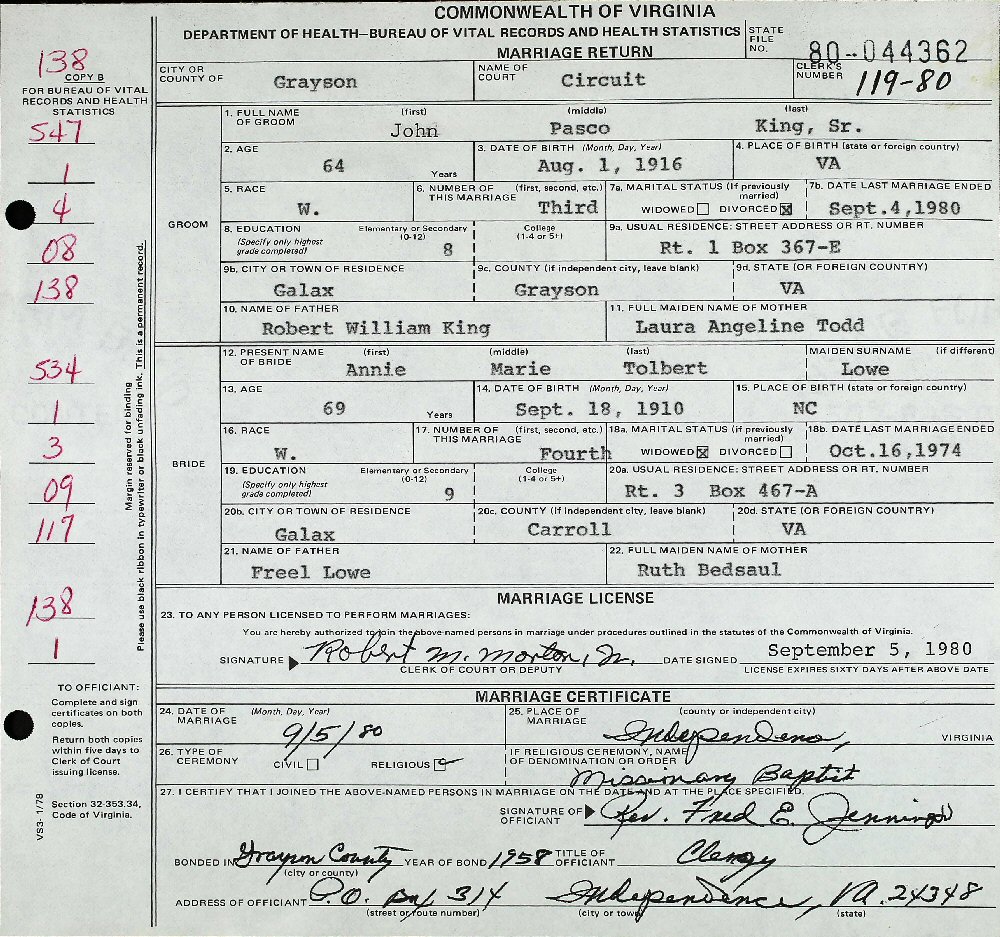 COMMONWEALTH OF VIRGINIA
DEPARTMENT OF HEALTH—BUREAU OF VITAL RECORDS AND HEALTH STATISTICS
MARRIAGE RETURN
STATE FILE NO. 80-044362
138
COPY B
FOR BUREAU OF VITAL
RECORDS AND HEALTH
STATISTICS
CITY OR COUNTY OF Grayson
NAME OF COURT Circuit
CLERK'S NUMBER 119-80
547
1
4
08
138
534
1
3
09
117
138
1
GROOM
1. FULL NAME OF GROOM (first) (middle) (last)
John Pasco King, Sr.
2. AGE 64 Years
3. DATE OF BIRTH (Month, Day, Year) Aug. 1, 1916
4. PLACE OF BIRTH (state or foreign country) VA
5. RACE W.
6. NUMBER OF THIS MARRIAGE (first, second, etc.) Third
7a. MARITAL STATUS (If previously married) WIDOWED DIVORCED X
7b. DATE LAST MARRIAGE ENDED Sept.4,1980
8. EDUCATION (Specify only highest grade completed) Elementary or Secondary (0-12) 8 College (1-4 or 5+)
9a. USUAL RESIDENCE: STREET ADDRESS OR RT. NUMBER Rt. 1 Box 367-E
9b. CITY OR TOWN OF RESIDENCE Galax
9c. COUNTY (if independent city, leave blank) Grayson
9d. STATE (OR FOREIGN COUNTRY) VA
10. NAME OF FATHER Robert William King
11. FULL MAIDEN NAME OF MOTHER Laura Angeline Todd
BRIDE
12. PRESENT NAME OF BRIDE (first) (middle) (last) MAIDEN SURNAME (if different)
Annie Marie Tolbert Lowe
13. AGE 69 Years
14. DATE OF BIRTH (Month, Day, Year) Sept. 18, 1910
15. PLACE OF BIRTH (state or foreign country) NC
16. RACE W.
17. NUMBER OF THIS MARRIAGE (first, second, etc.) Fourth
18a. MARITAL STATUS (if previously married) WIDOWED X DIVORCED
18b. DATE LAST MARRIAGE ENDED Oct.16,1974
19. EDUCATION (Specify only highest grade completed) Elementary or Secondary (0-12) 9 College (1-4 or 5+)
20a. USUAL RESIDENCE: STREET ADDRESS OR RT. NUMBER Rt. 3 Box 467-A
20b. CITY OR TOWN OF RESIDENCE Galax
20c. COUNTY (If independent city, leave blank) Carroll
20d. STATE (OR FOREIGN COUNTRY) VA
21. NAME OF FATHER Freel Lowe
22. FULL MAIDEN NAME OF MOTHER Ruth Bedsaul
Margin reserved for binding
Please use black ribbon in typewriter or black unfading ink. This is a permanent record.
MARRIAGE LICENSE
23. TO ANY PERSON LICENSED TO PERFORM MARRIAGES:
You are hereby authorized to join the above-named persons in marriage under procedures outlined in the statutes of the Commonwealth of Virginia.
SIGNATURE Robert M. Morton, Jr. DATE SIGNED September 5, 1980
CLERK OF COURT OR DEPUTY
LICENSE EXPIRES SIXTY DAYS AFTER ABOVE DATE
TO OFFICIANT:
Complete and sign
certificates on both
copies.
Return both copies
within five days to
Clerk of Court
issuing license.
Section 32-353.34,
Code of Virginia.
VS3- 1/78
MARRIAGE CERTIFICATE
24. DATE OF MARRIAGE (Month, Day, Year) 9/5/80
25. PLACE OF MARRIAGE (county or independent city) VIRGINIA
26. TYPE OF CEREMONY CIVIL RELIGIOUS
IF RELIGIOUS CEREMONY, NAME OF DENOMINATION OR ORDER Missionary Baptist
27. I CERTIFY THAT I JOINED THE ABOVE-NAMED PERSONS IN MARRIAGE ON THE DATE AND AT THE PLACE SPECIFIED.
SIGNATURE OF OFFICIANT Rev. Fred E. Jennings
BONDED IN Grayson County YEAR OF BOND 1958 TITLE OF OFFICIANT Clergy
(city or county)
ADDRESS OF OFFICIANT P.O. Box 314 Independence, VA. 24348
(street or route number) (city or town) (state)